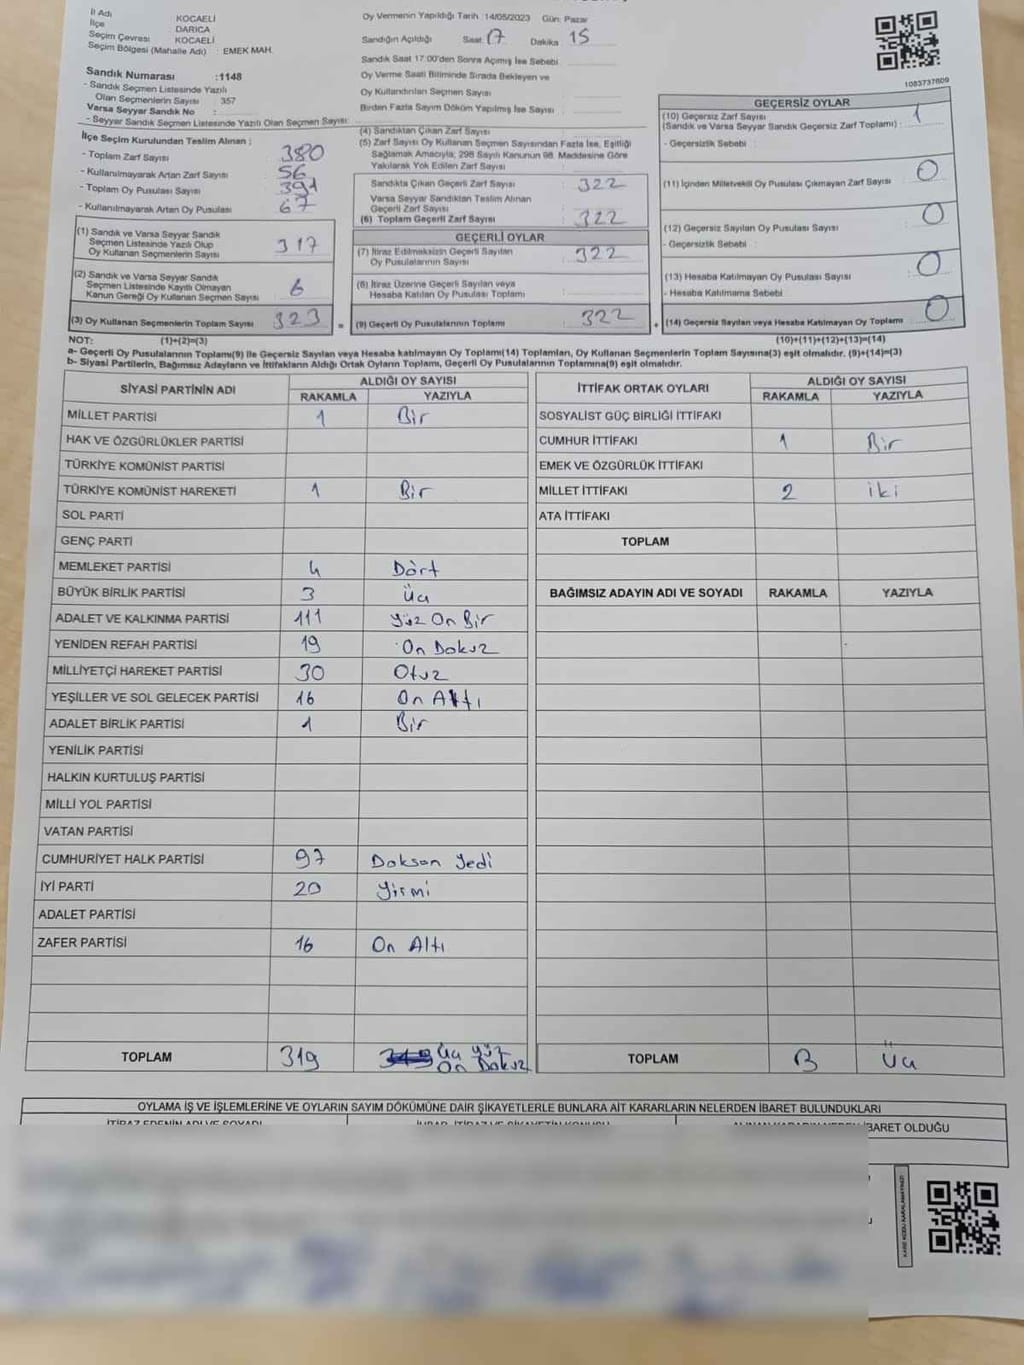 İl Adı KOCAELİ
İlçe : DARICA
Seçim Çevresi : KOCAELİ
Seçim Bölgesi (Mahalle Adı) : EMEK MAH.
Sandık Numarası :1148
- Sandık Seçmen Listesinde Yazılı
Olan Seçmenlerin Sayısı : 357
Varsa Seyyar Sandık No :
- Seyyar Sandık Seçmen Listesinde Yazılı Olan Seçmen Sayısı:
İlçe Seçim Kurulundan Teslim Alınan :
- Toplam Zarf Sayısı : 380
- Kullanılmayarak Artan Zarf Sayısı : 56
- Toplam Oy Pusulası Sayısı : 391
- Kullanılmayarak Artan Oy Pusulası : 67
(1) Sandık ve Varsa Seyyar Sandık
Seçmen Listesinde Yazılı Olup
Oy Kullanan Seçmenlerin Sayısı : 317
(2) Sandık ve Varsa Seyyar Sandık
Seçmen Listesinde Kayıtlı Olmayan
Kanun Gereği Oy Kullanan Seçmen Sayısı : 6
(3) Oy Kullanan Seçmenlerin Toplam Sayısı : 323 =
Oy Vermenin Yapıldığı Tarih :14/05/2023 Gün: Pazar
Sandığın Açıldığı Saat 17 Dakika 15
Sandık Saat 17:00'den Sonra Açımış İse Sebebi
Oy Verme Saati Bitiminde Sırada Bekleyen ve
Oy Kullandırılan Seçmen Sayısı
Birden Fazla Sayım Döküm Yapılmış İse Sayısı
(4) Sandıktan Çıkan Zarf Sayısı
(5) Zarf Sayısı Oy Kullanan Seçmen Sayısından Fazla İse, Eşitliği
Sağlamak Amacıyla; 298 Sayılı Kanunun 98. Maddesine Göre
Yakılarak Yok Edilen Zarf Sayısı
Sandıkta Çıkan Geçerli Zarf Sayısı : 322
Varsa Seyyar Sandıktan Teslim Alınan
Geçerli Zarf Sayısı
(6) Toplam Geçerli Zarf Sayısı : 322
GEÇERLİ OYLAR
(7) İtiraz Edilmeksizin Geçerli Sayılan
Oy Pusulalarının Sayısı : 322
(8) İtiraz Üzerine Geçerli Sayılan veya
Hesaba Katılan Oy Pusulası Toplamı
(9) Geçerli Oy Pusulalarının Toplamı : 322 +
1083737609
GEÇERSİZ OYLAR
(10) Geçersiz Zarf Sayısı
(Sandık ve Varsa Seyyar Sandık Geçersiz Zarf Toplamı) : 1
- Geçersizlik Sebebi :
(11) İçinden Milletvekili Oy Pusulası Çıkmayan Zarf Sayısı : 0
(12) Geçersiz Sayılan Oy Pusulası Sayısı : 0
- Geçersizlik Sebebi :
(13) Hesaba Katılmayan Oy Pusulası Sayısı : 0
- Hesaba Katılmama Sebebi :
(14) Geçersiz Sayılan veya Hesaba Katılmayan Oy Toplamı : 0
NOT: (1)+(2)=(3) (10)+(11)+(12)+(13)=(14)
a- Geçerli Oy Pusulalarının Toplamı(9) ile Geçersiz Sayılan veya Hesaba katılmayan Oy Toplamı(14) Toplamları, Oy Kullanan Seçmenlerin Toplam Sayısına(3) eşit olmalıdır. (9)+(14)=(3)
b- Siyasi Partilerin, Bağımsız Adayların ve İttifakların Aldığı Ortak Oyların Toplamı, Geçerli Oy Pusulalarının Toplamına(9) eşit olmalıdır.
SİYASİ PARTİNİN ADI ALDIĞI OY SAYISI
RAKAMLA YAZIYLA
MİLLET PARTİSİ 1 Bir
HAK VE ÖZGÜRLÜKLER PARTİSİ
TÜRKİYE KOMÜNİST PARTİSİ
TÜRKİYE KOMÜNİST HAREKETİ 1 Bir
SOL PARTİ
GENÇ PARTİ
MEMLEKET PARTİSİ 4 Dört
BÜYÜK BİRLİK PARTİSİ 3 Üç
ADALET VE KALKINMA PARTİSİ 111 Yüz On Bir
YENİDEN REFAH PARTİSİ 19 On Dokuz
MİLLİYETÇİ HAREKET PARTİSİ 30 Otuz
YEŞİLLER VE SOL GELECEK PARTİSİ 16 On Altı
ADALET BİRLİK PARTİSİ 1 Bir
YENİLİK PARTİSİ
HALKIN KURTULUŞ PARTİSİ
MİLLİ YOL PARTİSİ
VATAN PARTİSİ
CUMHURİYET HALK PARTİSİ 97 Doksan Yedi
İYİ PARTİ 20 Yirmi
ADALET PARTİSİ
ZAFER PARTİSİ 16 On Altı
TOPLAM 319 Üç Yüz On Dokuz
İTTİFAK ORTAK OYLARI ALDIĞI OY SAYISI
RAKAMLA YAZIYLA
SOSYALİST GÜÇ BİRLİĞİ İTTİFAKI
CUMHUR İTTİFAKI 1 Bir
EMEK VE ÖZGÜRLÜK İTTİFAKI
MİLLET İTTİFAKI 2 iki
ATA İTTİFAKI
TOPLAM
BAĞIMSIZ ADAYIN ADI VE SOYADI RAKAMLA YAZIYLA
TOPLAM 3 Üç
OYLAMA İŞ VE İŞLEMLERİNE VE OYLARIN SAYIM DÖKÜMÜNE DAİR ŞİKAYETLERLE BUNLARA AİT KARARLARIN NELERDEN İBARET BULUNDUKLARI
İTİRAZ EDENİN ADI VE SOYADI
İBARET OLDUĞU
KARE KODU KARALAMAYINIZ!